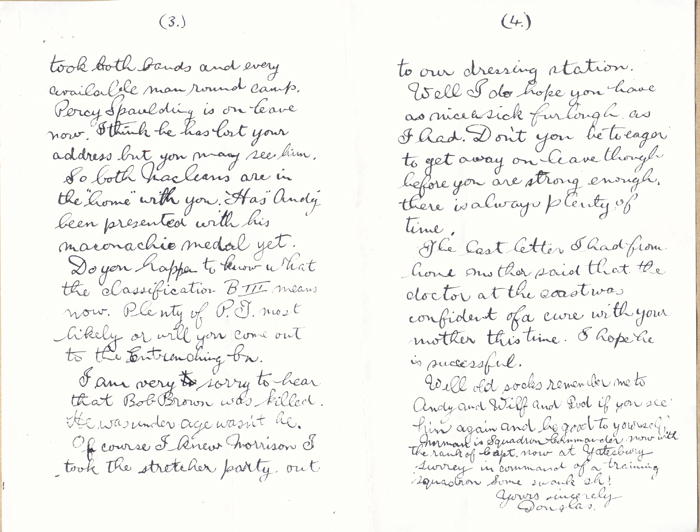 (3.)
took both bands and every
available man round camp.
Percy Spaulding is on leave
now. I think he has lost your
address but you may see him.
So both Macleans are in
the "home" with you. Has Andy
been presented with his
maconachie medal yet.
Do you happen to know what
the classification B III means
now. Plenty of P.T. most
likely or will you come out
to the Entrenching bn.
I am very sorry to hear
that Bob Brown was killed.
He was under age wasn't he.
Of course I knew Morrison I
took the stretcher party out
(4.)
to our dressing station.
Well I do hope you have
as nice a sick furlough as
I had. Don't you be to eager
to get away on leave though
before you are strong enough,
there is always plenty of
time.
The last letter I had from
home mother said that the
doctor at the coast was
confident of a cure with your
mother this time. I hope he
is successful.
Well old socks remember me to
Andy and Wilf and if you see
him again and be good to yourself.
Norman is Squadron Commander now with
the rank of Capt. now at Yatesbury
Surrey in command of a training
squadron some swank eh!
Yours sincerely
Douglas.